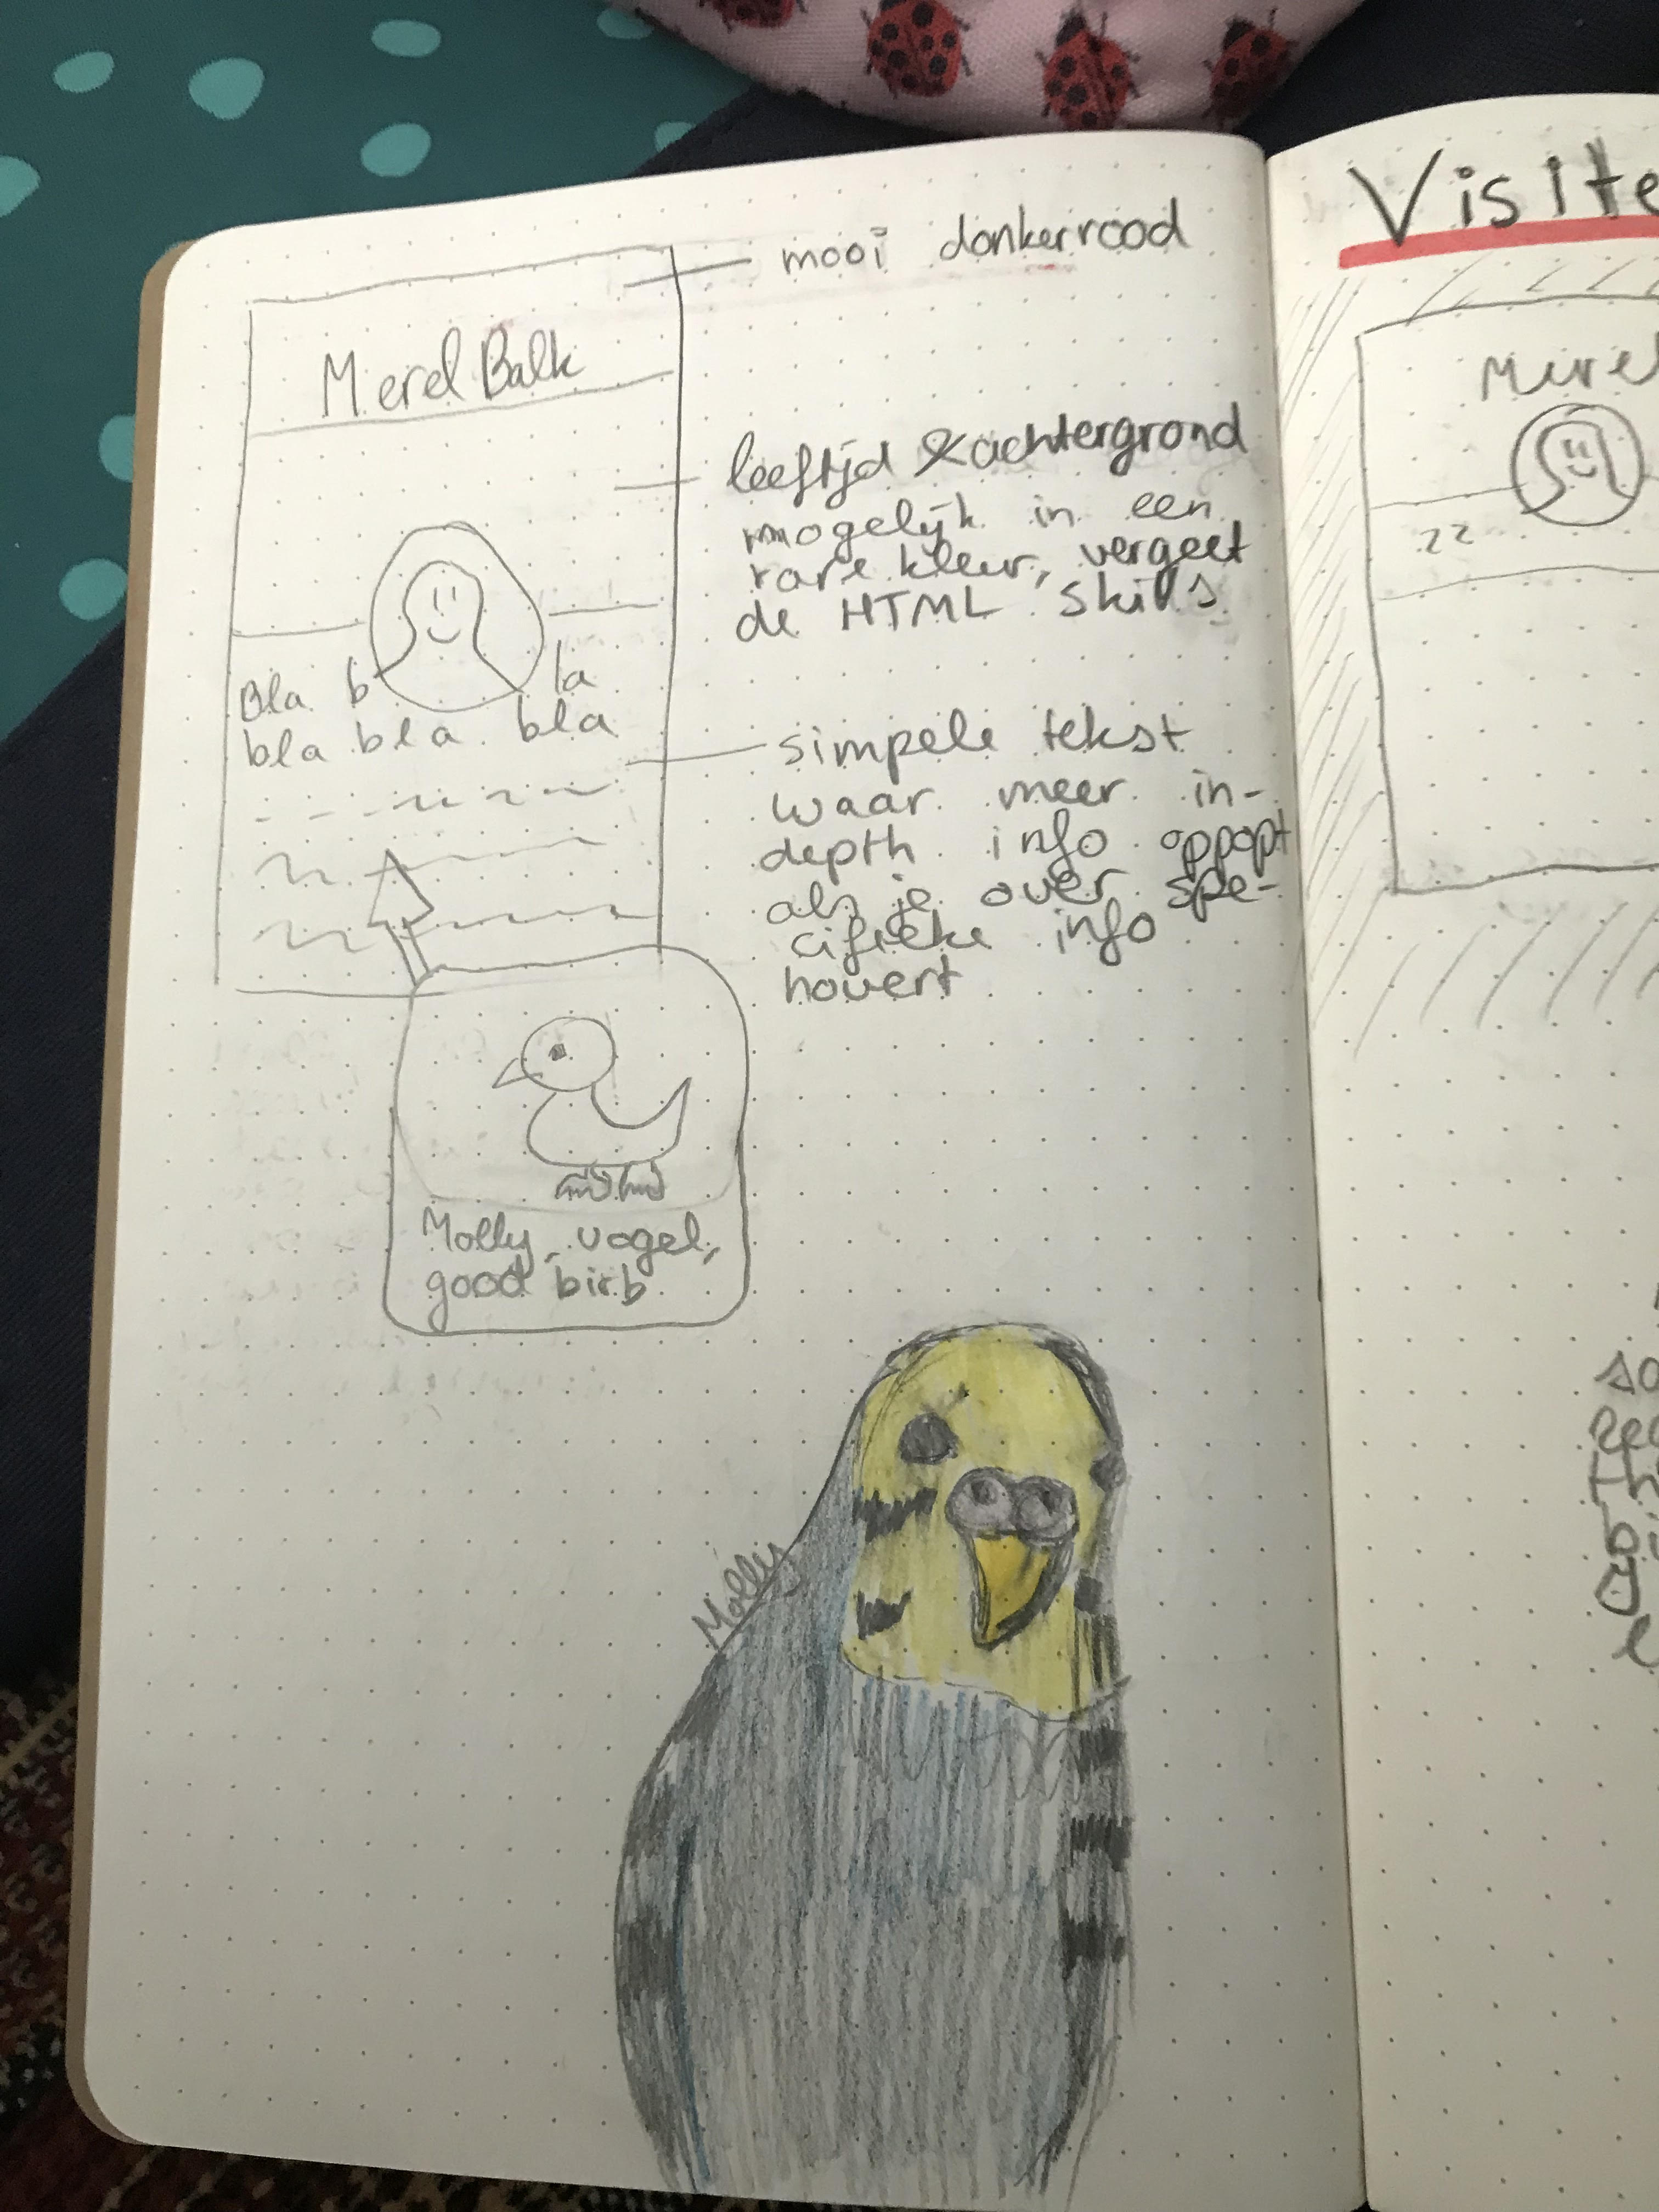 mooi donkerrood
Merel Balk
leeftijd & achtergrond
mogelijk in een
rare kleur, vergeet
de HTML skills
Bla b la
bla bla bla
simpele tekst
waar meer in-
depth info oppopt
als je over spe-
cifieke info
hovert
Molly, vogel,
good birb
Molly
Visite
Merel
22